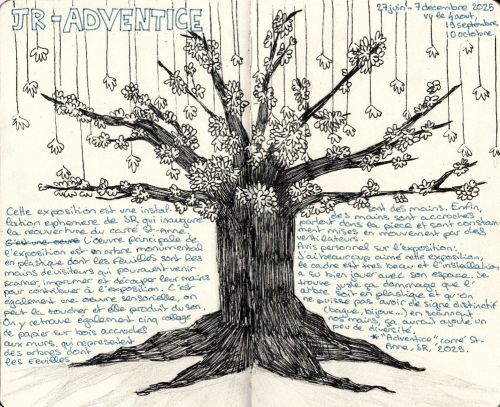 JR - ADVENTICE
27 juin - 7 decembre 2025
vu le 4 aout,
19 septembre,
10 octobre
Cette exposition est une instal-
lation ephemere de JR, qui inaugure
la reouverture du carré St-Anne.
C'est une oeuvre L'oeuvre principale de
l'exposition est un arbre monumental
en plastique dont les feuilles sont les
mains de visiteurs qui pouvaient venir
scanner, imprimer et découper leur mains
pour contribuer à l'exposition. C'est
également une oeuvre sensorielle, on
peut la toucher et elle produit du son.
On y retrouve également cinq collages
de papier sur bois accrochés
aux murs, qui représentent
des arbres dont
les feuilles
sont des mains. Enfin,
des mains sont accrochés
partout dans la piece et sont constam-
ment mises en mouvement par des
ventilateurs.
Avis personnel sur l'exposition:
J'ai beaucoup aimé cette exposition,
le cadre est très beau et l'installation
a su bien jouer avec son espace. Je
trouve juste ça dommage que l'
arbre soit en plastique et qu'on
ne puisse pas avoir de signe distinctif
(bague, bijoux...) en scannant
nos mains, ça aurait ajouté un
peu de diversité.
* "Adventice" carré St-
Anne, JR, 2025.